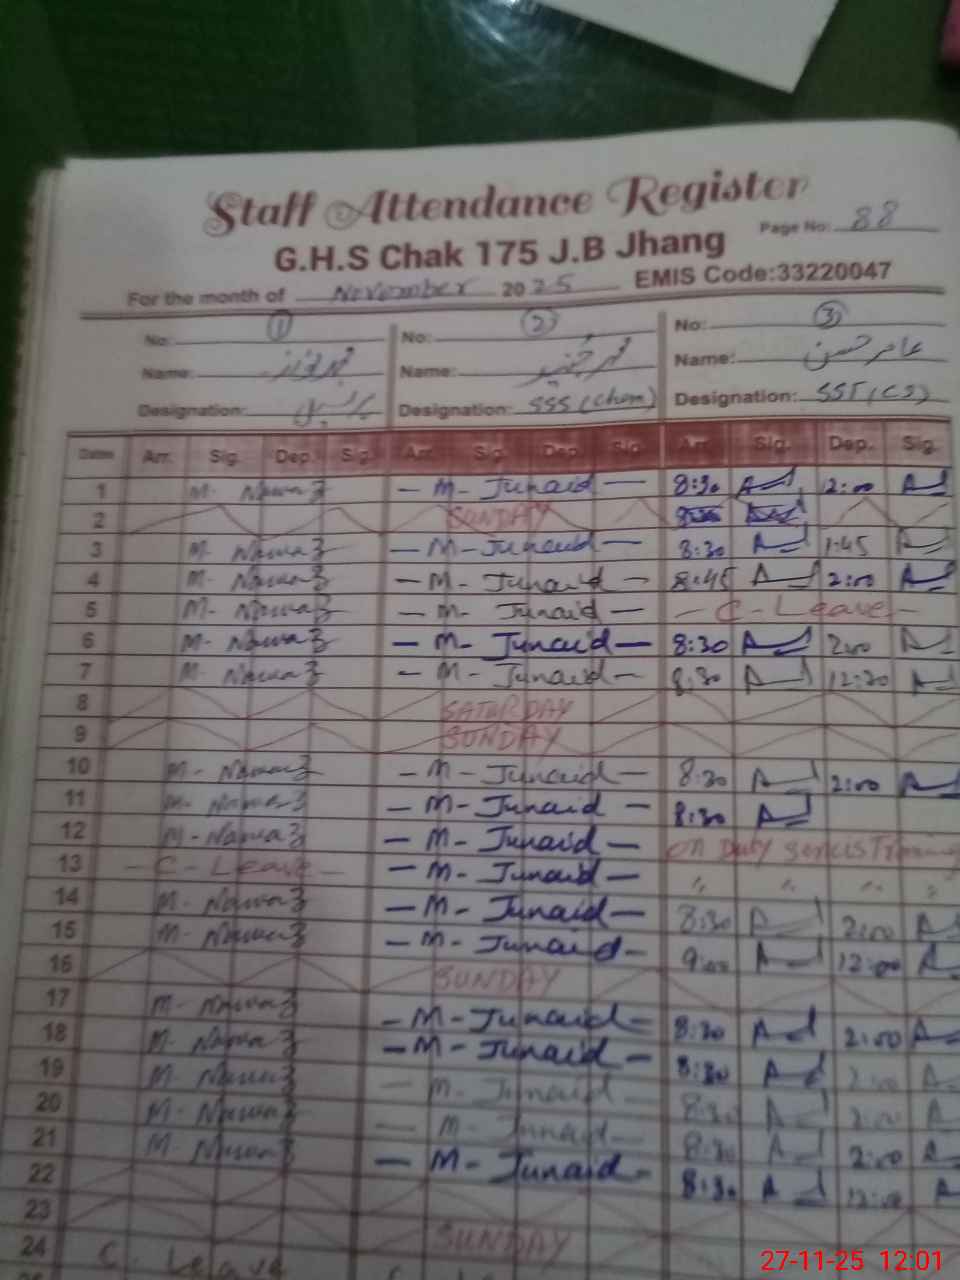 Staff Attendance Register
Page No: 88
G.H.S Chak 175 J.B Jhang
For the month of November 2025 EMIS Code:33220047
No: 1 No: 2 No: 3
Name: Name: Name: عامر حسن
Designation: Designation: SSS (Chem) Designation: SST (CS)
Dates Arr. Sig. Dep. Sig. Arr. Sig. Dep. Sig. Arr. Sig. Dep. Sig.
1 M. Nawaz - M - Junaid - 8:30 2:00
2 SUNDAY
3 M. Nawaz - M - Junaid - 8:30 1:45
4 M. Nawaz - M - Junaid - 8:45 2:00
5 M. Nawaz - M - Junaid - - C - Leave -
6 M. Nawaz - M - Junaid - 8:30 2:00
7 M. Nawaz - M - Junaid - 8:30 12:30
8 SATURDAY
9 SUNDAY
10 M - Nawaz - M - Junaid - 8:30 2:00
11 M - Nawaz - M - Junaid - 8:30
12 M - Nawaz - M - Junaid - On Duty
13 - C - Leave - - M - Junaid - " " " "
14 M - Nawaz - M - Junaid - 8:30 2:00
15 M - Nawaz - M - Junaid - 9:00 12:00
16 SUNDAY
17 M - Nawaz - M - Junaid - 8:30 2:00
18 M - Nawaz - M - Junaid - 8:30 2:00
19 M - Nawaz - M - Junaid - 8:30 2:00
20 M - Nawaz - M - Junaid - 8:30 2:00
21 M - Nawaz - M - Junaid - 8:30 12:00
22
23 SUNDAY
24 C. Leave
27-11-25 12:01